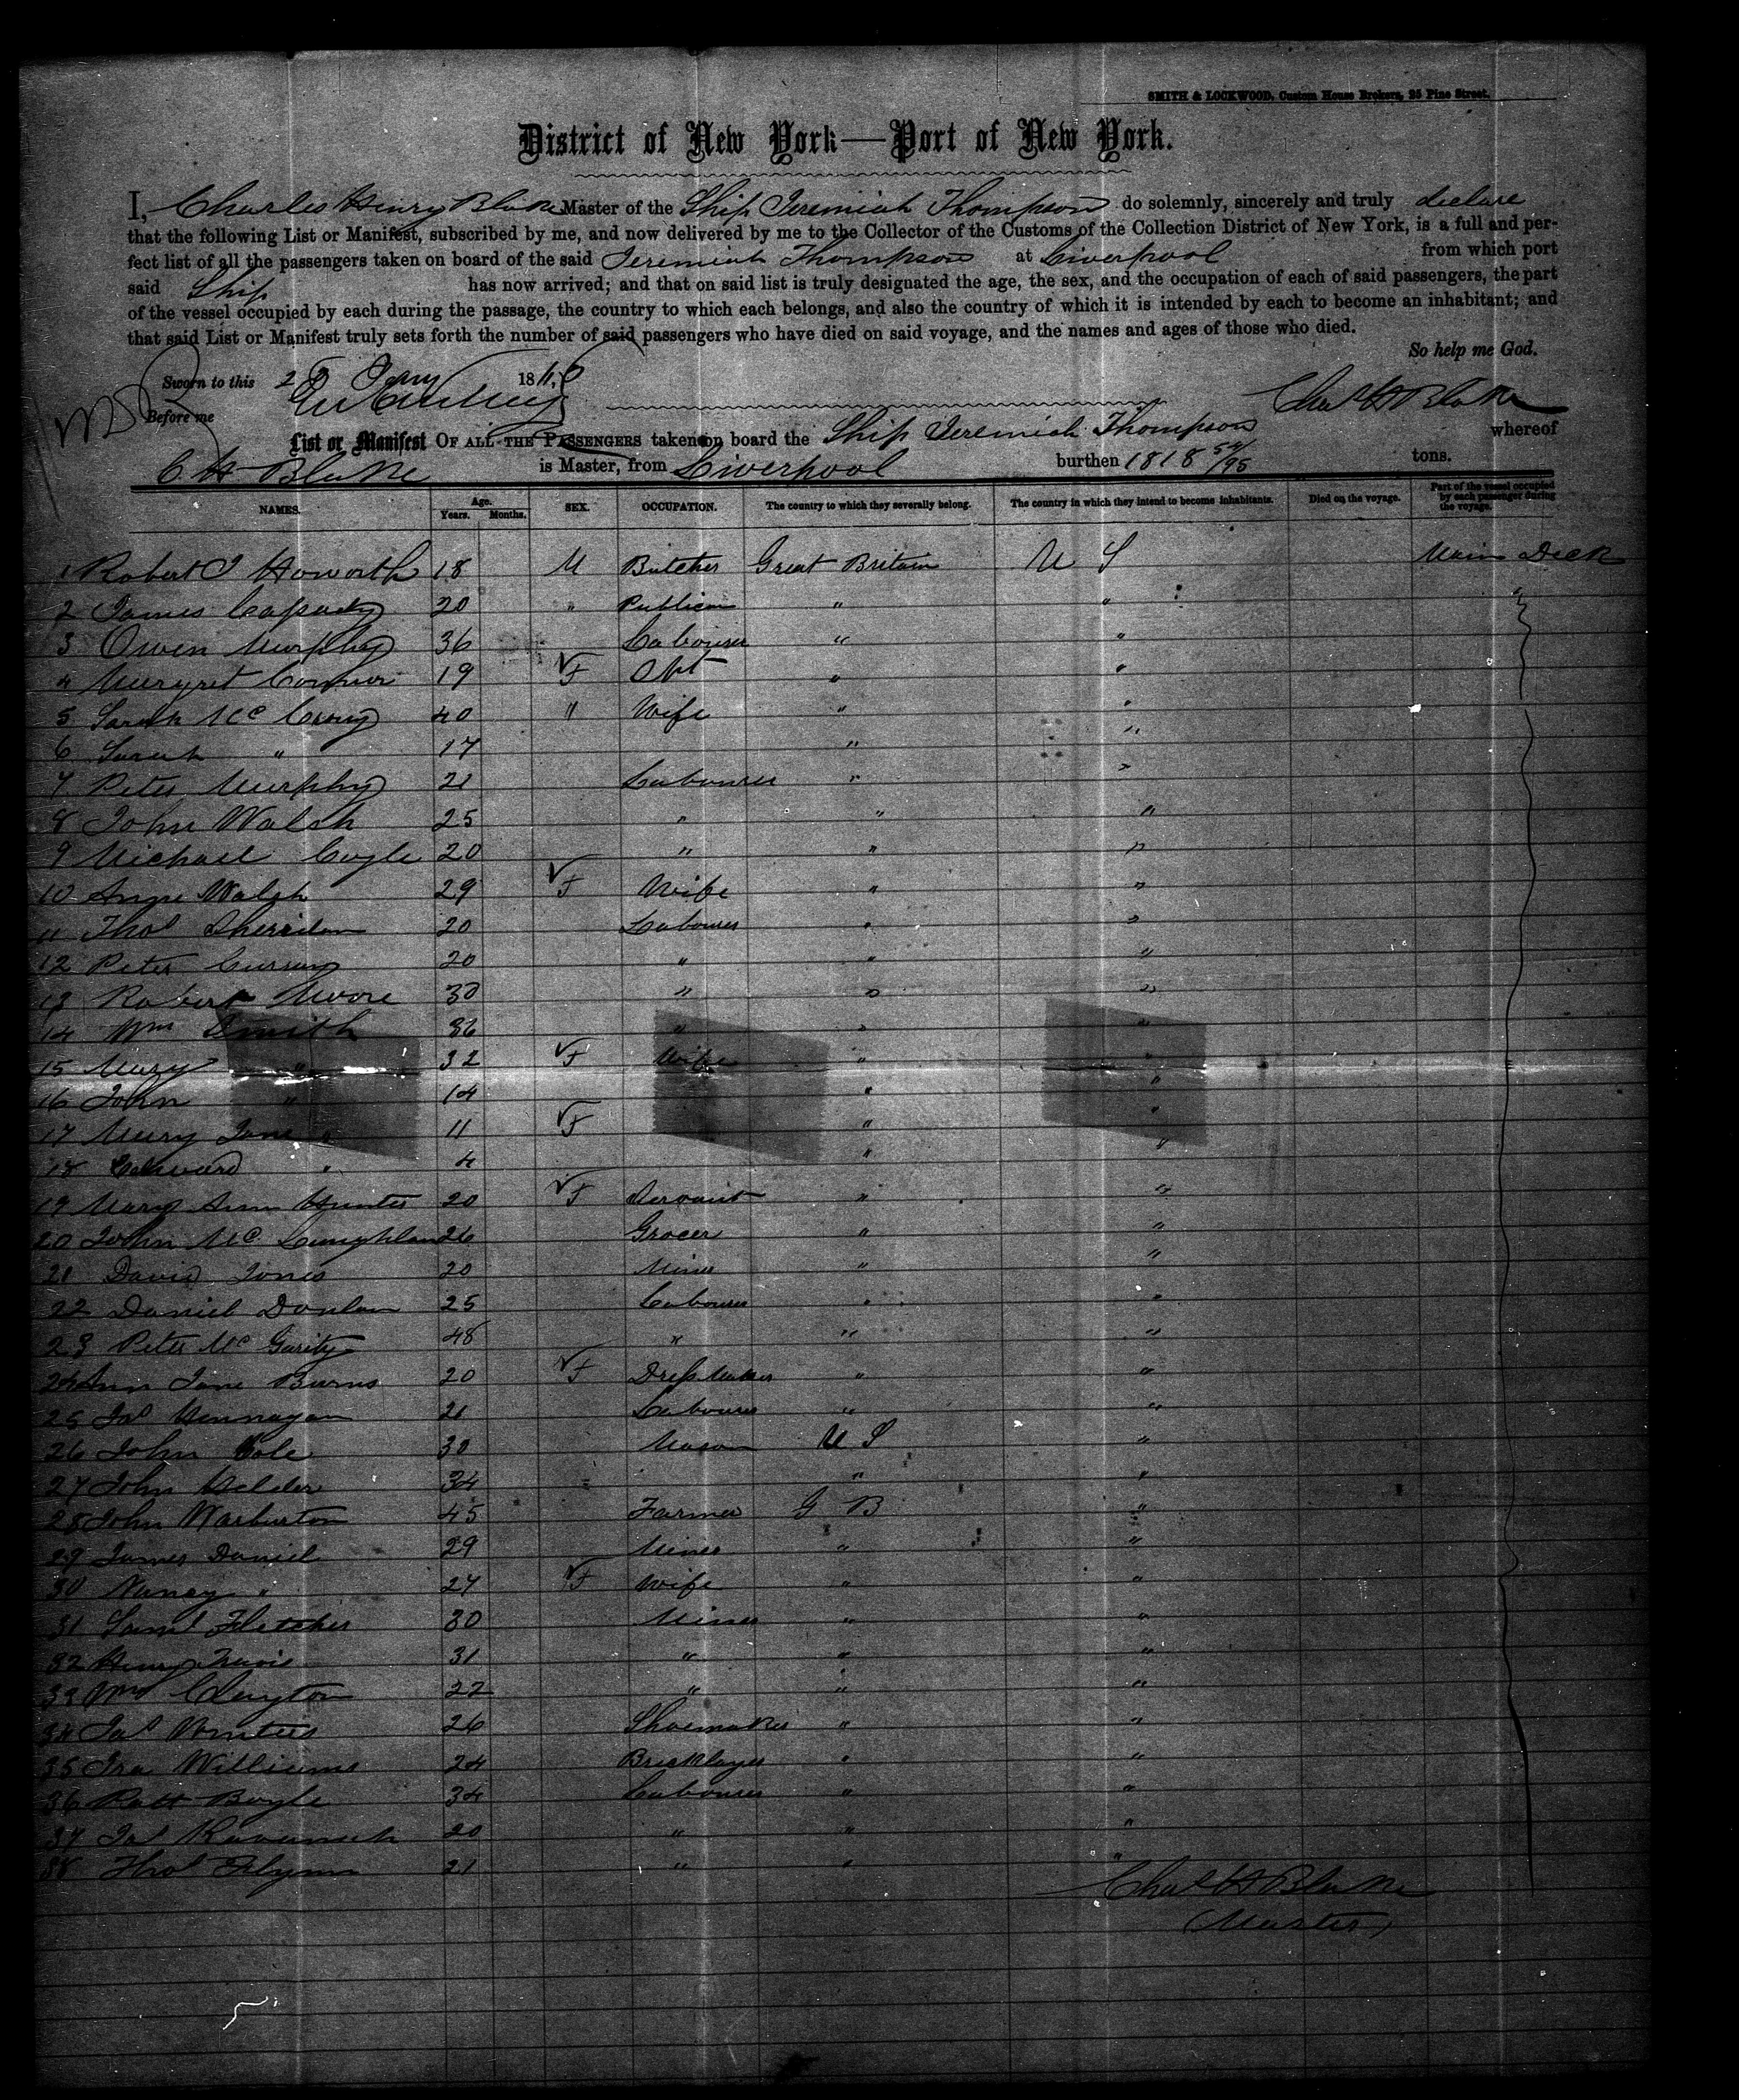 SMITH & LOCKWOOD, Custom House Brokers, 25 Pine Street.
District of New York—Port of New York.
I, Charles Henry Blake Master of the Ship Jeremiah Thompson do solemnly, sincerely and truly declare
that the following List or Manifest, subscribed by me, and now delivered by me to the Collector of the Customs of the Collection District of New York, is a full and per-
fect list of all the passengers taken on board of the said Jeremiah Thompson at Liverpool from which port
said Ship has now arrived; and that on said list is truly designated the age, the sex, and the occupation of each of said passengers, the part
of the vessel occupied by each during the passage, the country to which each belongs, and also the country of which it is intended by each to become an inhabitant; and
that said List or Manifest truly sets forth the number of said passengers who have died on said voyage, and the names and ages of those who died.
So help me God.
Sworn to this 2 Jany 186
Before me Chas H Blake
List or Manifest OF ALL THE PASSENGERS taken on board the Ship Jeremiah Thompson whereof
C. H Blake is Master, from Liverpool burthen 1818 54/95 tons.
NAMES. Age. Years. Months. SEX. OCCUPATION. The country to which they severally belong. The country in which they intend to become inhabitants. Died on the voyage. Part of the vessel occupied by each passenger during the voyage.
1 Robert J Haworth 18 M Butcher Great Britain U S Main Deck
2 James Cassady 20 " Publican " " "
3 Owen Murphy 36 Labourer " "
4 Margret Connor 19 F " "
5 Sarah Mc 40 " Wife " "
6 Sarah " 17 " "
7 Peter Murphy 21 Labourer " "
8 John Walsh 25 " " "
9 Michael Coyle 20 " " "
10 Anne Walsh 29 F Wife " "
11 Thos Sherridan 20 Labourer " "
12 Peter 20 " " "
13 Robert Moore 30 " " "
14 Wm Smith 36 " " "
15 Mary " 32 F Wife " "
16 John " 14 " "
17 Mary Jane " 11 F " "
18 Edward " 4 " "
19 Mary Ann Hunter 20 F Servant " "
20 John Mc Laughlan 26 Grocer " "
21 David Jones 20 Miner " "
22 Daniel Donlan 25 Labourer " "
23 Peter Mc Garity 48 " " "
24 Ann Jane Burns 20 F Dress Maker " "
25 Jas Hennagan 21 Labourer " "
26 John Cole 30 Mason U S "
27 John 34 " "
28 John Warburton 45 Farmer G B "
29 James Daniel 29 Miner " "
30 Nancy " 27 F Wife " "
31 Saml Fletcher 30 Miner " "
32 Henry Travis 31 " " "
33 Wm Clayton 22 " " "
34 Jas 26 Shoemaker " "
35 Ira Williams 24 Bricklayer " "
36 Patt Boyle 34 Labourer " "
37 Jas Kavanah 20 " " "
38 Thos Flynn 21 " " "
Chas H Blake
(Master)